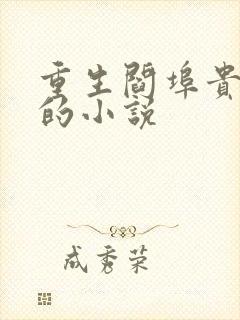 重生閻埠貴
的小說
成秀荣